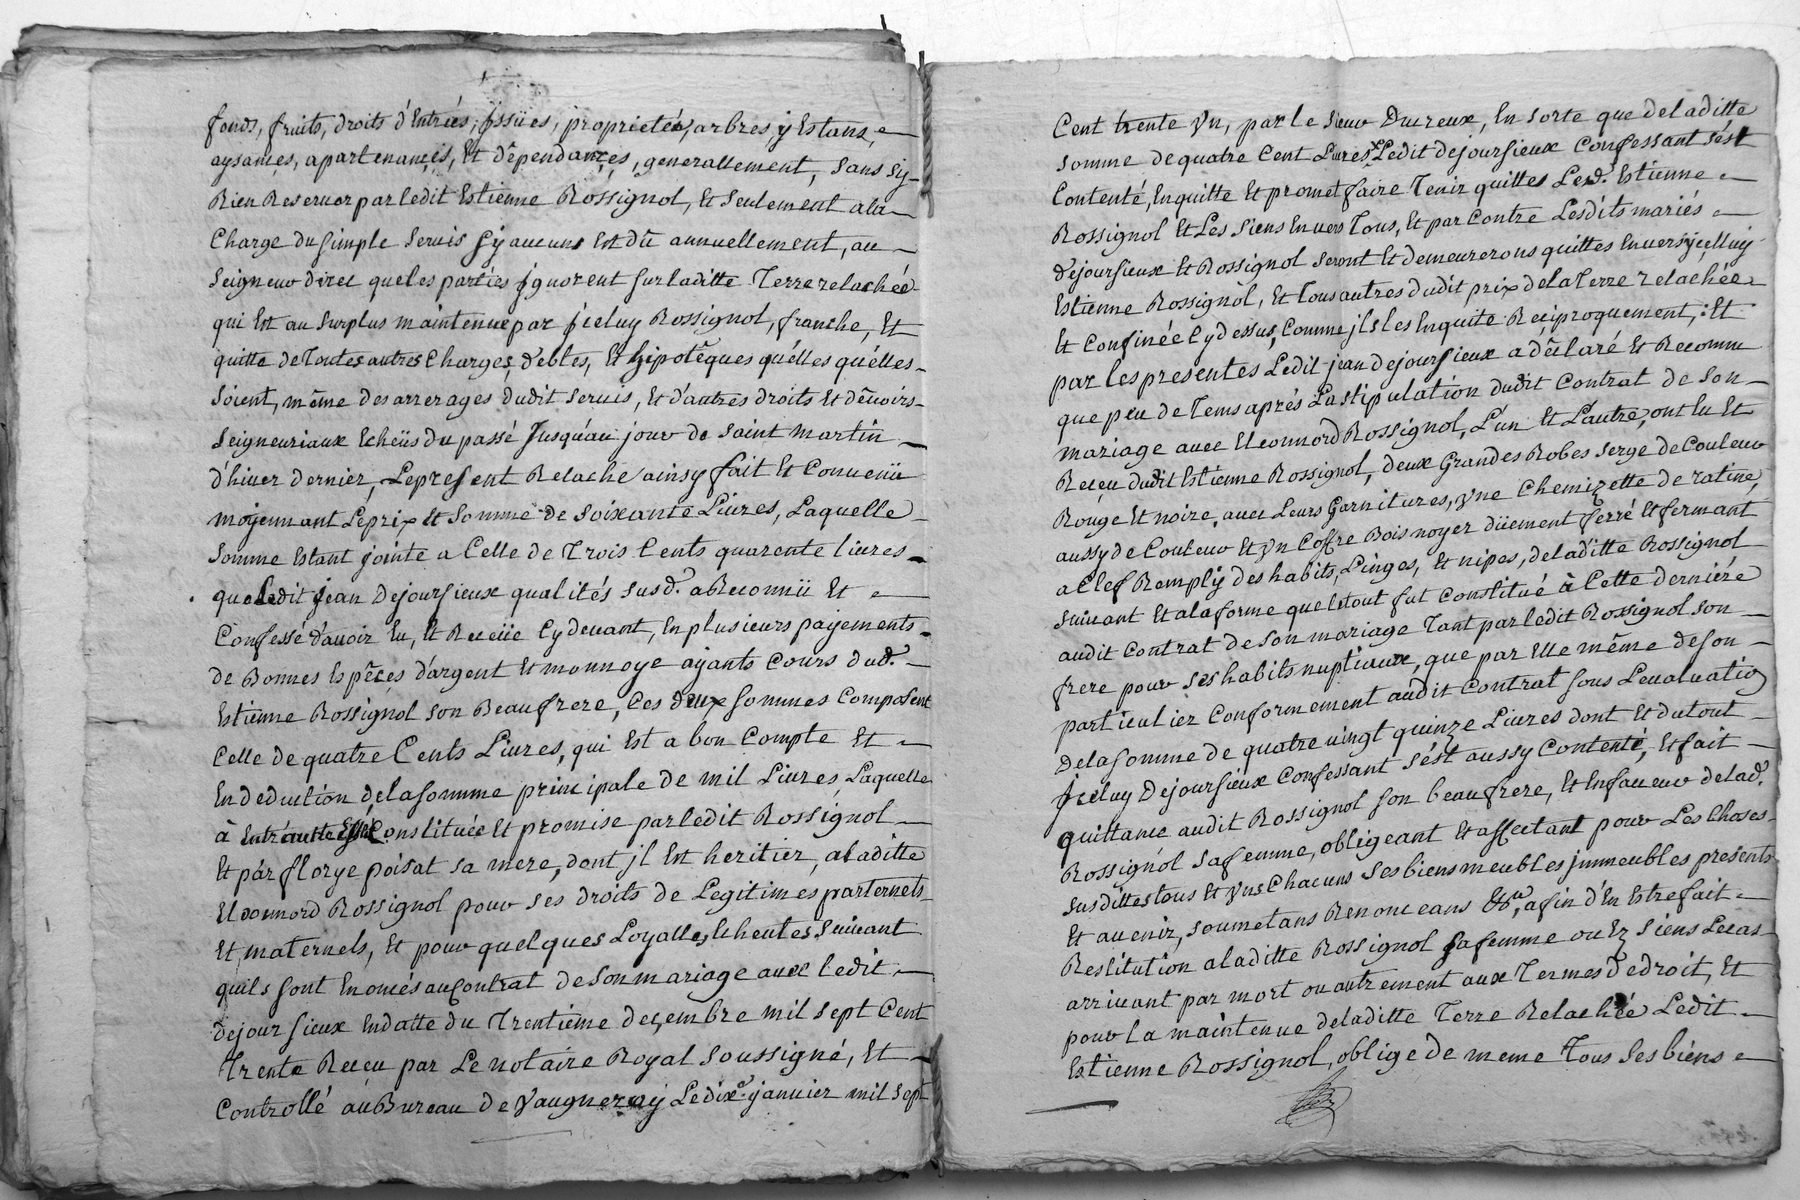 fonds, fruits, droits d'Entrées, jssües, proprietés, arbres, ÿ Estans,
aysances, apartenançes, Et dêpendançes, generallement, sans sÿ
Rien Reseruer par ledit Estienne Rossignol, Et seulement ala
Charge du simple seruis sy aucuns Est dû annuellement, au
seigneur direc que les parties jgnorent sur laditte Terre relachée
qui Est au surplus maintenue par jceluy Rossignol, franche, Et
quitte de Toutes autres Charges, debtes, Et hipotêques quélles quélles
soient, même des arrerages dudit seruis, Et d'autres droits Et dêuoirs
seigneuriaux Echeüs du passé Jusqu'au jour de saint martin
d'hiuer dernier, Le present Relaché ainsy fait Et Conuenü
moÿennant Le prix Et Somme de soixante Liures, Laquelle
somme Estant jointe a Celle de Trois Cents quarente liures
que Ledit jean Dejoursieux qualités susd. a Reconnü Et
Confessé d'auoir Eu, Et Receüe Cy deuant, En plusieurs paÿements
de Bonnes Espêces d'argent Et monnoye aÿants Cours dud.
Estienne Rossignol son Beaufrere, Ces deux sommes Composent
Celle de quatre Cents Liures, qui Est a bon Compte Et
En deduction de la somme principale de mil Liures Laquelle
à Entr'autre Constituée Et promise par ledit Rossignol
Et par florye poisat sa mere, dont jl Est heritier, a laditte
Eleonnord Rossignol pour ses droits de Legitimes parternels
Et maternels, Et pour quelques Loyalles Echeutes suiuant
quils sont Enoncés au Contrat de son mariage auec ledit
dejoursieux En datte du Trentiéme deçembre mil sept Cent
Trente Reçeu par Le notaire Royal soussigné, Et
Controllé au Bureau de Vaugneray Le dixe. januier mil sept
Cent trente Vn, par le sieur Ducreux, En sorte que de laditte
somme de quatre Cent Liures Ledit dejoursieux Confessant s'est
Contenté, En quitte Et promet faire Tenir quittes Led. Estienne
Rossignol Et Les siens Enuers Tous, Et par Contre Lesdits mariés
dejoursieux Et Rossignol seront Et demeurerons quittes Enuers jçelluy
Estienne Rossignol, Et Tous autres dudit prix de la Terre relachée
Et Confinée Cy dessus, Comme jls les En quitte Reçiproquement, : Et
par les presentes Ledit jean dejoursieux a dêclaré Et Reconnu
que peu de Tems aprés La stipulation dudit Contrat de son
mariage auec Eleonnord Rossignol, L'un Et L'autre, ont Eu Et
Reçeu dudit Estienne Rossignol, deux Grandes Robes serge de Couleur
Rouge Et noire, auec Leurs Garnitures, Vne Chemizette de ratine,
aussy de Couleur Et Vn Coffre Bois noyer düement ferré Et fermant
a Clef Remplÿ des habits, Linges, Et nipes, de laditte Rossignol
suiuant Et a la forme que le tout fut Constitué à Cette derniére
audit Contrat de son mariage Tant par ledit Rossignol son
frere pour ses habits nuptiaux, que par Elle même de son
particulier Conformement audit Contrat sous L'eualuatio
De la somme de quatre vingt quinze Liures dont Et du tout
jceluy Dejoursieux Confessant s'ést aussy Contenté, Et fait
quittance audit Rossignol son beaufrere, Et En faueur de lad.
Rossignol sa femme, obligeant Et affectant pour Les Choses
susdittes tous Et Vns Chacuns ses biens meubles jmmeubles presents
Et auenir, soumetans Renonceans &a. afin d'En Estre fait
Restitution a laditte Rossignol sa femme ou Ez siens Le cas
arriuant par mort ou autrement aux Termes De droit, Et
pour la maintenue de laditte Terre Relachée Ledit
Estienne Rossignol, oblige de meme Tous ses biens